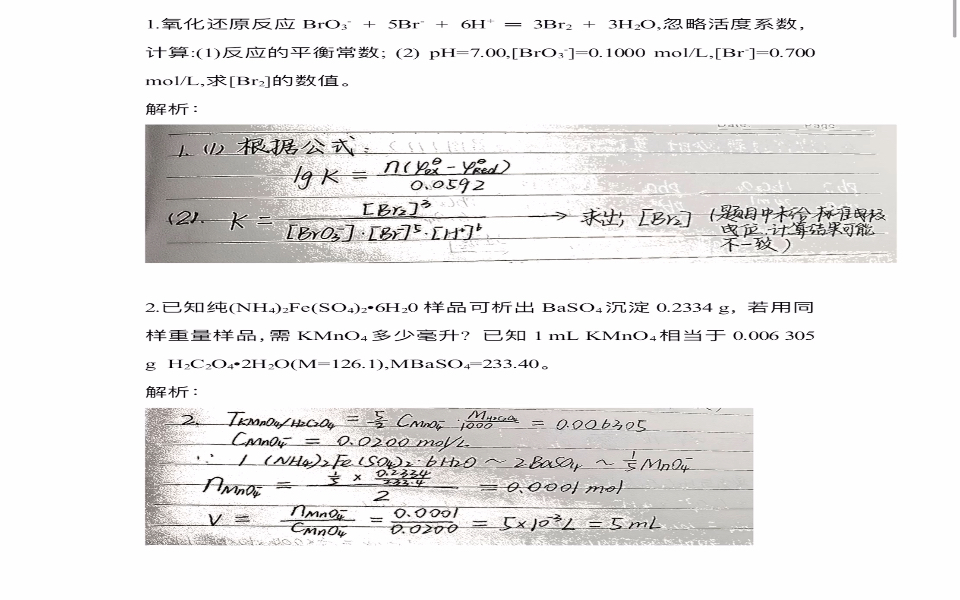 1.氧化还原反应 BrO₃⁻ + 5Br⁻ + 6H⁺ = 3Br₂ + 3H₂O,忽略活度系数,
计算:(1)反应的平衡常数; (2) pH=7.00,[BrO₃⁻]=0.1000 mol/L,[Br⁻]=0.700
mol/L,求[Br₂]的数值。
解析：
1. (1) 根据公式：
lg K = n(φ°ox - φ°Red) / 0.0592
(2). K = [Br₂]³ / [BrO₃⁻]·[Br⁻]⁵·[H⁺]⁶ → 求出 [Br₂] (题目中未给标准电极
电位.计算结果可能
不一致)
2.已知纯(NH₄)₂Fe(SO₄)₂•6H₂0 样品可析出 BaSO₄ 沉淀 0.2334 g, 若用同
样重量样品,需 KMnO₄ 多少毫升? 已知 1 mL KMnO₄ 相当于 0.006 305
g H₂C₂O₄•2H₂O(M=126.1),MBaSO₄=233.40。
解析：
2. T KMnO₄/H₂C₂O₄ = 5/2 C MnO₄⁻ · M H₂C₂O₄ / 1000 = 0.006305
C MnO₄⁻ = 0.0200 mol/L
∵ 1 (NH₄)₂Fe(SO₄)₂·6H₂O ~ 2BaSO₄ ~ 1/5 MnO₄⁻
n MnO₄⁻ = 1/5 × 0.2334/233.4 / 2 = 0.0001 mol
V = n MnO₄⁻ / C MnO₄⁻ = 0.0001 / 0.0200 = 5×10⁻³ L = 5 mL